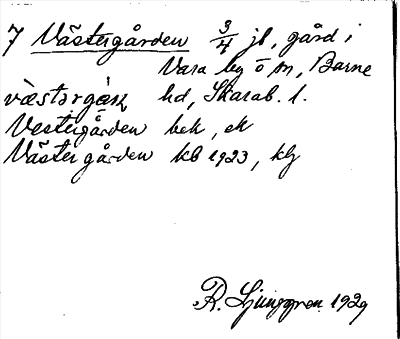 7 Västergården 3/4 jb, gård i
Vara by o sn, Barne
hd, Skarab. l.
Vestergården bek, ek
Västergården kb 1923, klg
R. Ljunggren 1929